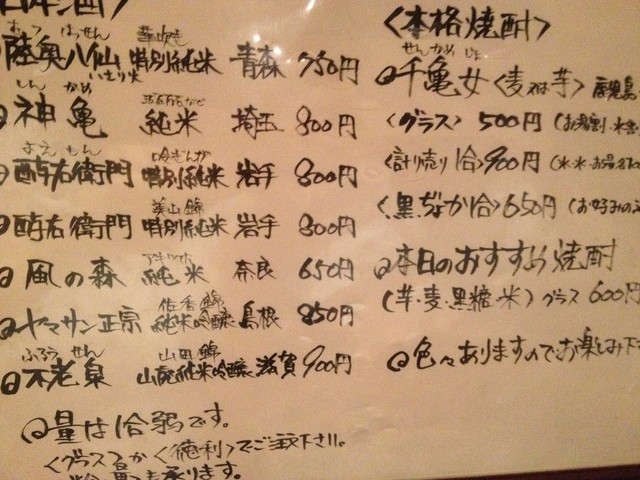 日本酒〉
陸奥八仙 華吹雪 特別純米 青森 750円
むつ はっせん
いさり火
神亀 純米 埼玉 800円
しん かめ
酉右衛門 吟ぎんが 特別純米 岩手 800円
よえもん
酉右衛門 美山錦 特別純米 岩手 800円
風の森 純米 奈良 650円
ヤマサン正宗 佐香錦 純米吟醸 島根 850円
不老泉 山田錦 山廃純米吟醸 滋賀 900円
ふろうせん
量は1合弱です。
〈グラス〉か〈徳利〉でご注文下さい。
も承ります。
〈本格焼酎〉
せんかめじょ
千亀女〈麦又は芋〉鹿児島
〈グラス〉500円(お湯割・水割
〈計り売り1合〉900円(氷・水・お湯
〈黒ぢょか1合〉650円(お好みの
本日のおすすめ焼酎
(芋・麦・黒糖・米)グラス 600円
色々ありますのでお楽しみ下